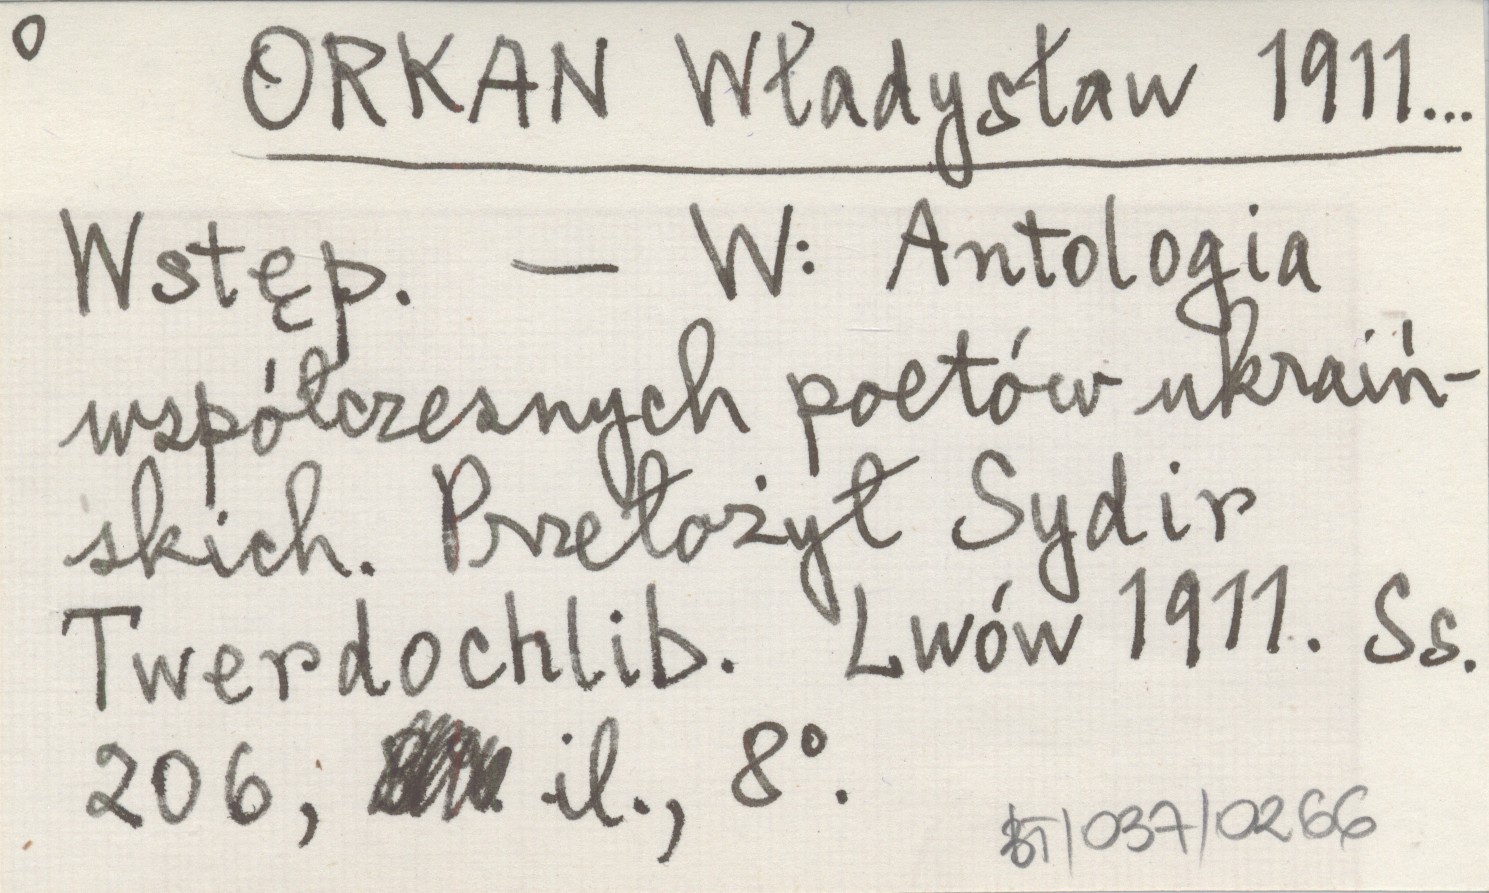 o ORKAN Władysław 1911...
Wstęp. — W: Antologia
współczesnych poetów ukraiń-
skich. Przełożył Sydir
Twerdochlib. Lwów 1911. Ss.
206; il., 8°.
/037/0266